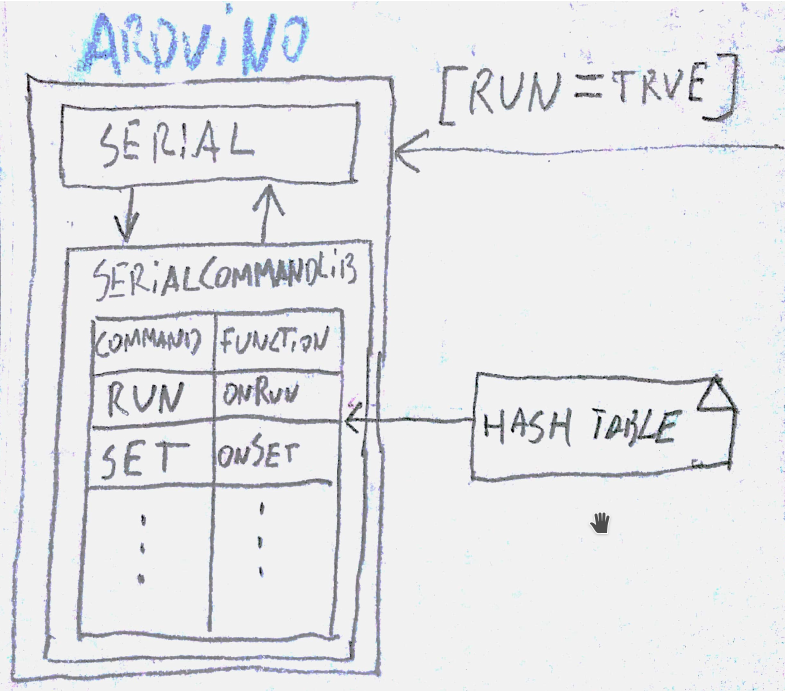 ARDUiNO
[RUN=TRVE]
SERIAL
SERiALCOMMANDLiB
COMMAND FUNCTION
RUN ONRUN
SET ONSET
HASH TABLE